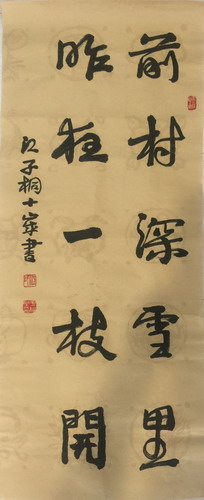 前村深雪里
昨夜一枝開
子桐十歲書